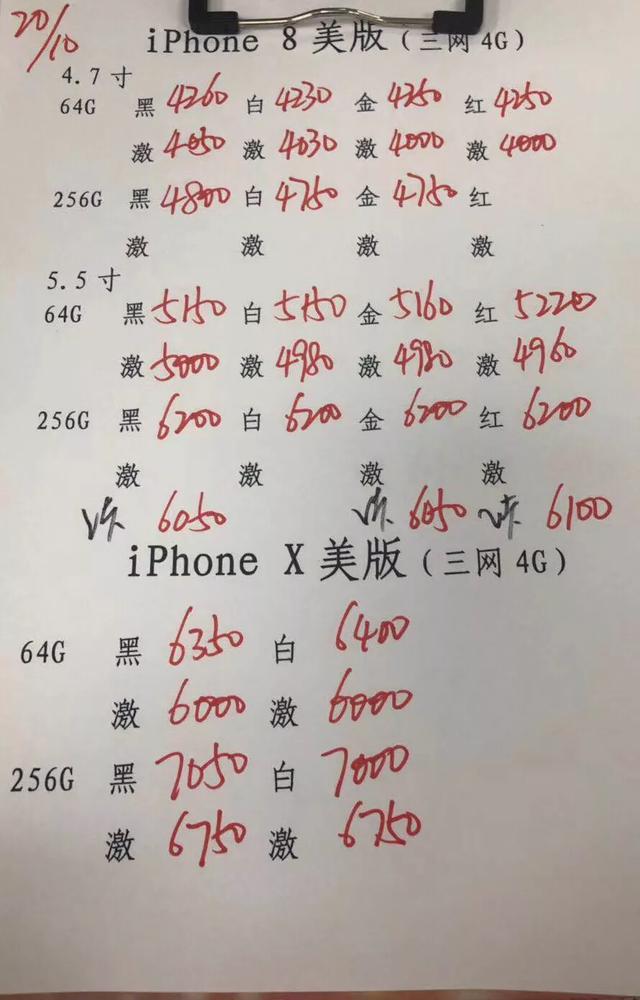 20/10
iPhone 8 美版（三网 4G）
4.7 寸
64G 黑 4260 白 4230 金 4250 红 4250
激 4050 激 4030 激 4000 激 4000
256G 黑 4800 白 4750 金 4750 红
激 激 激 激
5.5 寸
64G 黑 5150 白 5150 金 5160 红 5220
激 5000 激 4980 激 4980 激 4960
256G 黑 6200 白 6200 金 6200 红 6200
激 激 激 激
6050 6050 6100
iPhone X 美版（三网 4G）
64G 黑 6350 白 6400
激 6000 激 6000
256G 黑 7050 白 7000
激 6750 激 6750